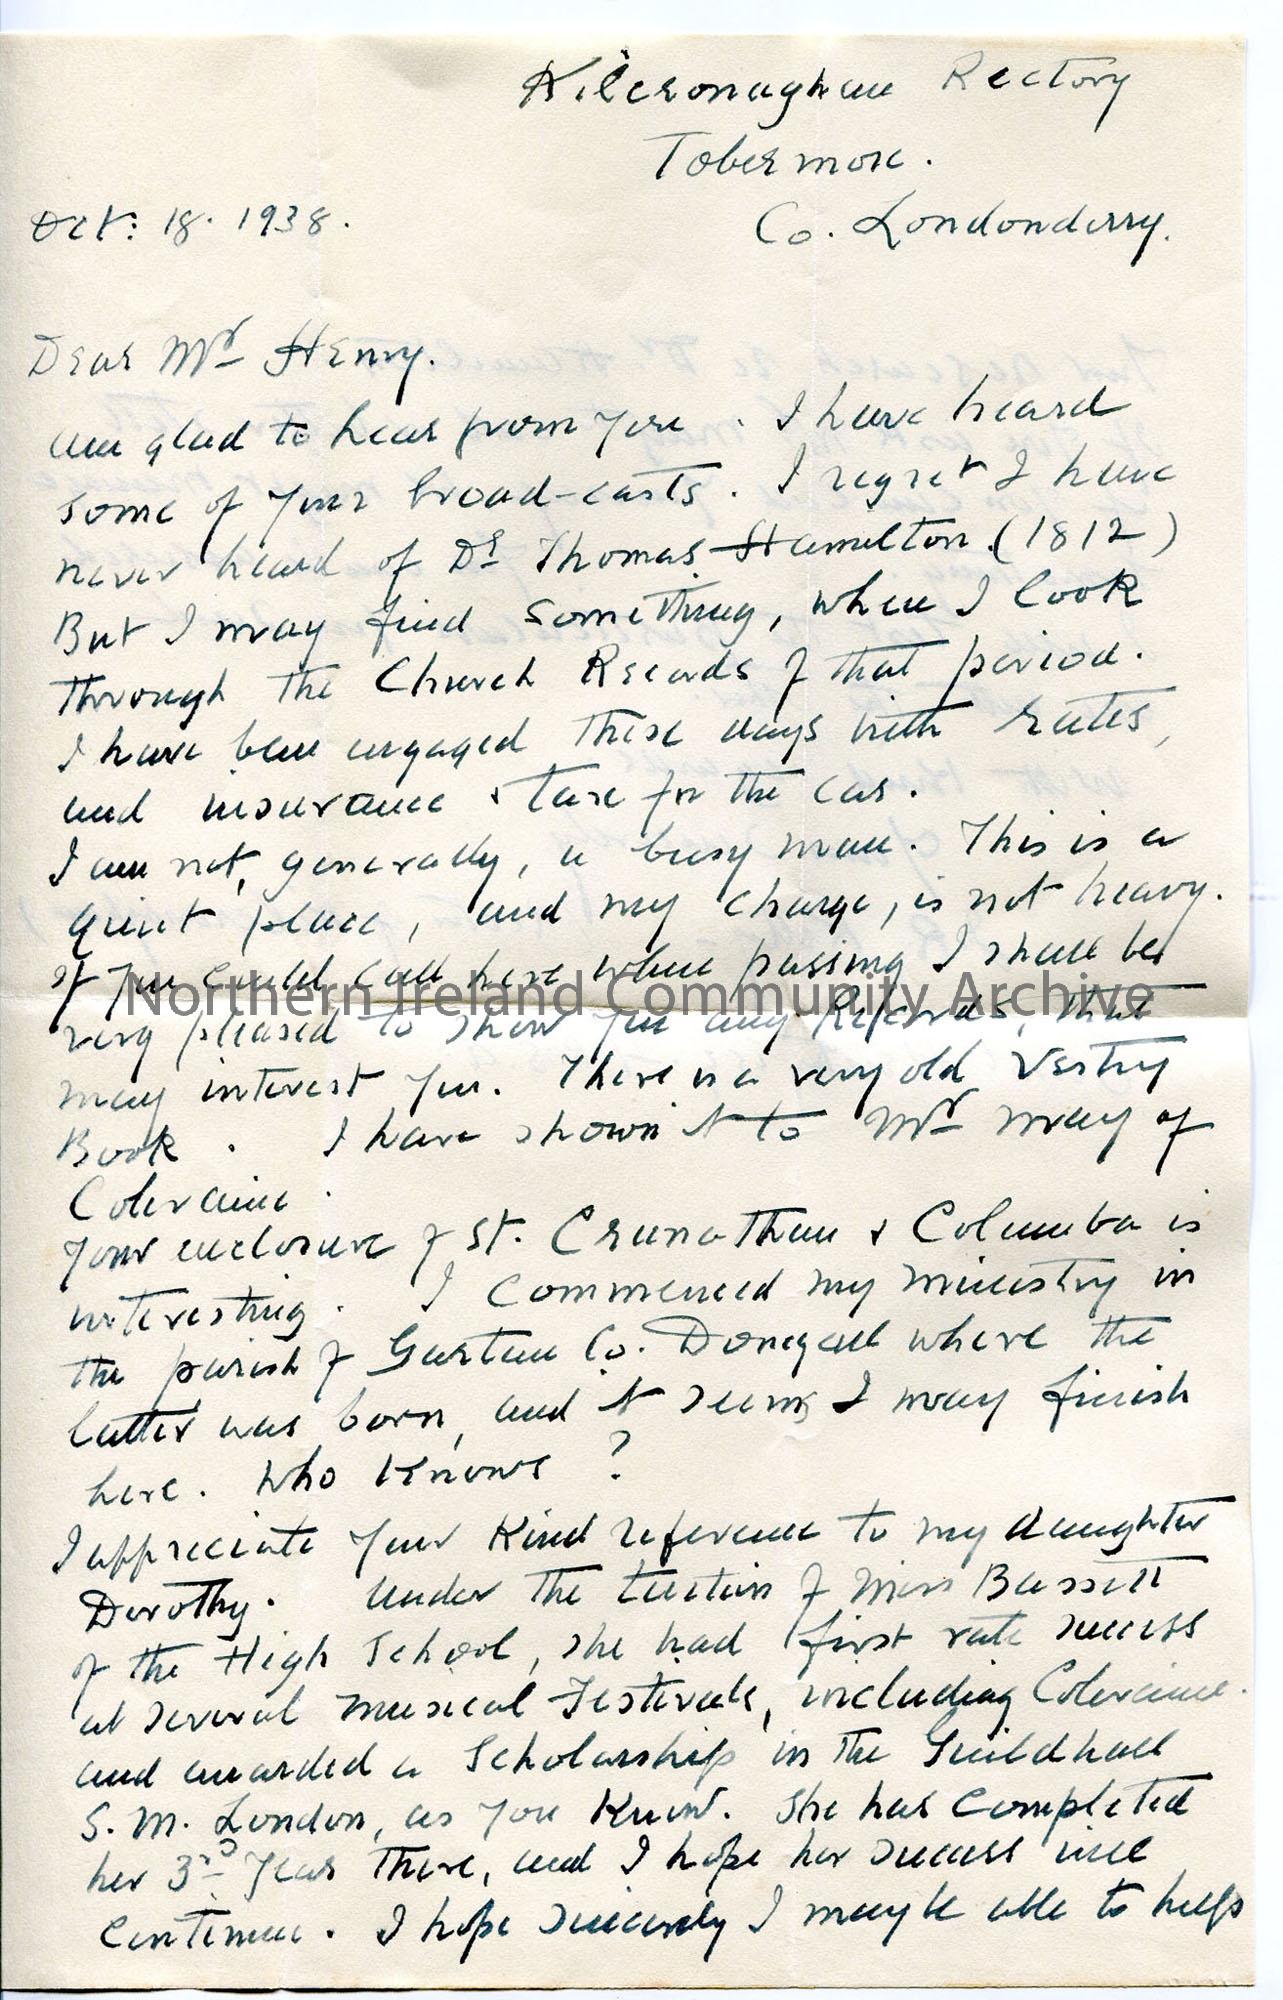 Kilcronaghan Rectory
Tobermore.
Co. Londonderry.
Oct: 18. 1938.
Dear Mr Henry.
am glad to hear from you. I have heard
some of your broad-casts. I regret I have
never heard of Dr Thomas Hamilton (1812)
But I may find something, when I look
through the Church Records of that period.
I have been engaged these days with rates,
and insurance & tax for the car.
I am not, generally, a busy man. This is a
quiet place, and my charge, is not heavy.
If you could call here when passing I shall be
Northern Ireland Community Archive
very pleased to show you any Records, that
may interest you. There is a very old Vestry
Book. I have shown it to Mr May of
Coleraine.
Your enclosure of St. Crunathan & Columba is
interesting. I commenced my ministry in
the parish of Gartan Co. Donegal where the
latter was born, and it seems I may finish
here. Who knows?
I appreciate your kind reference to my daughter
Dorothy. Under the tuition of Miss Bassett
of the High School, she had first rate success
at several musical Festivals, including Coleraine.
and awarded a Scholarship in the Guildhall
S. M. London, as you know. She has completed
her 3rd year there, and I hope her success will
continue. I hope sincerely I may be able to help